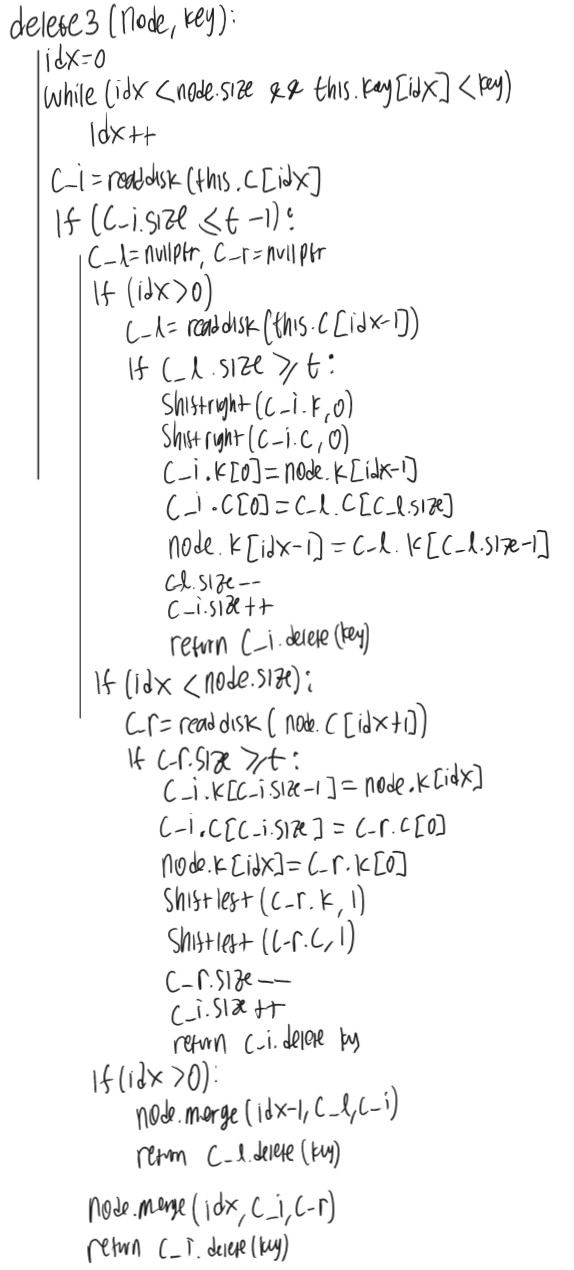 delete3 (node, key):
idx=0
while (idx < node.size && this.key[idx] < key)
idx++
c_i = readdisk(this.c[idx]
If (c_i.size ≤ t-1):
c_l = nullptr, c_r = nullptr
If (idx>0)
c_l = readdisk(this.c[idx-1])
If c_l.size ≥ t:
Shiftright(c_i.k,0)
Shiftright(c_i.c,0)
c_i.k[0] = node.k[idx-1]
c_i.c[0] = c_l.c[c_l.size]
node.k[idx-1] = c_l.k[c_l.size-1]
cl.size--
c_i.size++
return c_i.delete(key)
If (idx < node.size):
c_r = readdisk(node.c[idx+1])
If c_r.size ≥ t:
c_i.k[c_i.size-1] = node.k[idx]
c_i.c[c_i.size] = c_r.c[0]
node.k[idx] = c_r.k[0]
Shiftleft(c_r.k,1)
Shiftleft(c_r.c,1)
c_r.size--
c_i.size++
return c_i.delete key
If (idx>0):
node.merge(idx-1, c_l, c_i)
return c_l.delete(key)
node.merge(idx, c_i, c_r)
return c_i.delete(key)